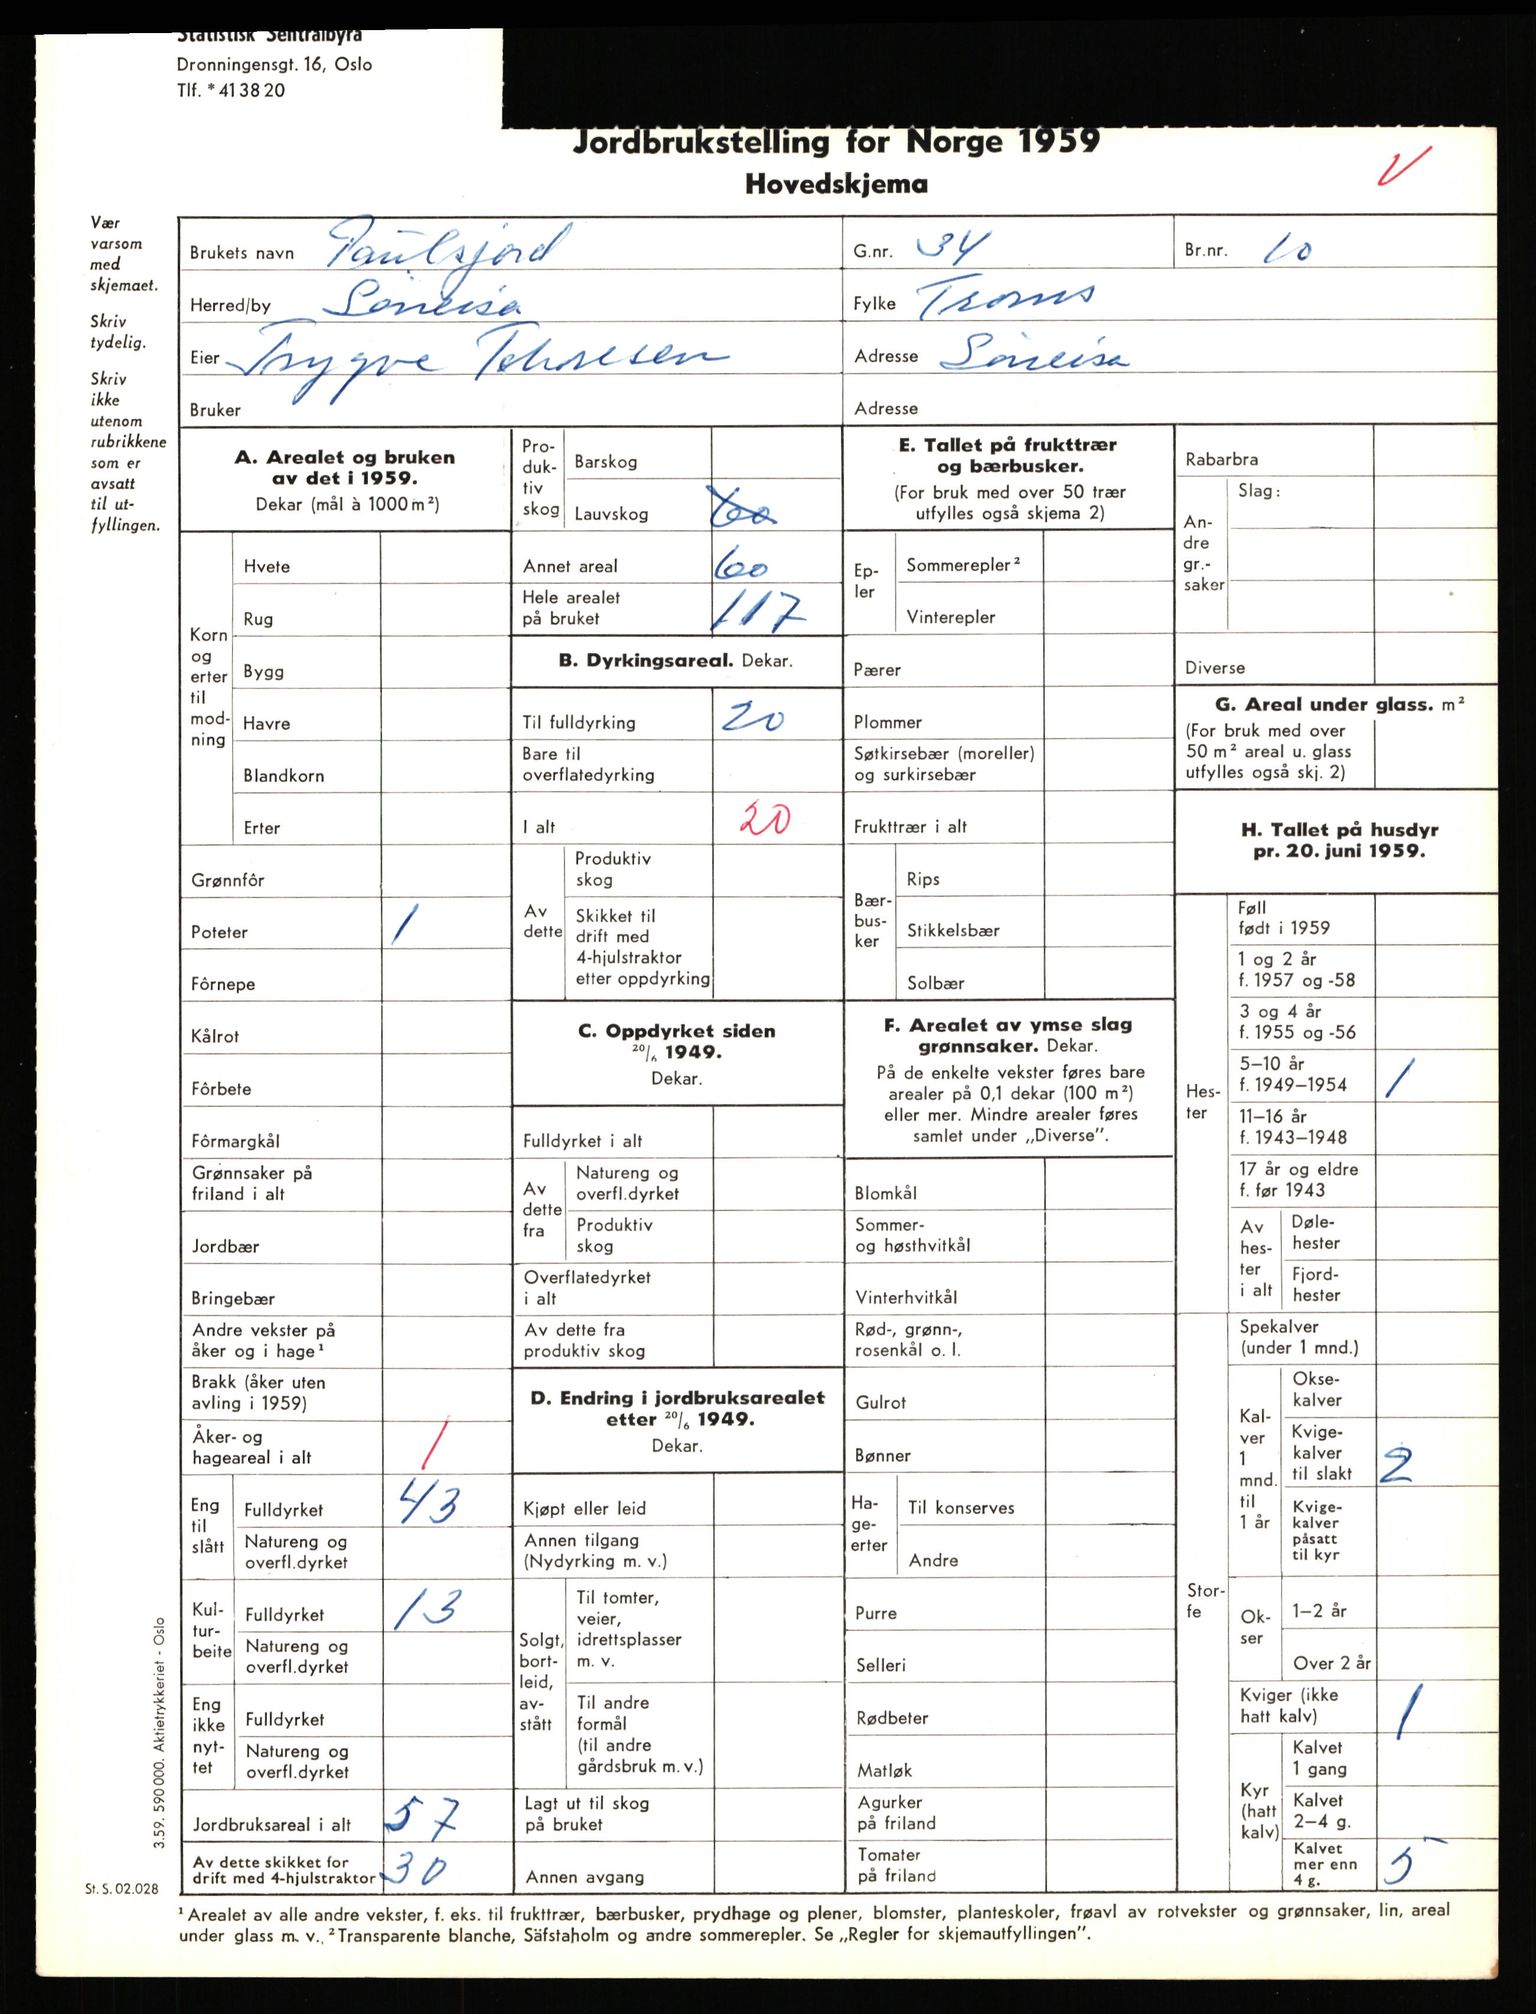 Statistisk Sentralbyrå
Dronningensgt. 16, Oslo
Tlf. * 41 38 20
Jordbrukstelling for Norge 1959
Hovedskjema
V
Vær
varsom
med
skjemaet.
Skriv
tydelig.
Skriv
ikke
utenom
rubrikkene
som er
avsatt
til ut-
fyllingen.
Brukets navn Paulsjord G.nr. 34 Br.nr. 10
Herred/by Sörreisa Fylke Troms
Eier Trygve Thoresen Adresse Sörreisa
Bruker Adresse
A. Arealet og bruken
av det i 1959.
Dekar (mål à 1000 m²)
Korn
og
erter
til
mod-
ning
Hvete
Rug
Bygg
Havre
Blandkorn
Erter
Grønnfôr
Poteter 1
Fôrnepe
Kålrot
Fôrbete
Fôrmargkål
Grønnsaker på
friland i alt
Jordbær
Bringebær
Andre vekster på
åker og i hage¹
Brakk (åker uten
avling i 1959)
Åker- og
hageareal i alt 1
Eng
til
slått
Fulldyrket 43
Natureng og
overfl.dyrket
Kul-
tur-
beite
Fulldyrket 13
Natureng og
overfl.dyrket
Eng
ikke
nyt-
tet
Fulldyrket
Natureng og
overfl.dyrket
Jordbruksareal i alt 57
Av dette skikket for
drift med 4-hjulstraktor 30
Pro-
duk-
tiv
skog
Barskog
Lauvskog 60
Annet areal 60
Hele arealet
på bruket 117
B. Dyrkingsareal. Dekar.
Til fulldyrking 20
Bare til
overflatedyrking
I alt 20
Av
dette
Produktiv
skog
Skikket til
drift med
4-hjulstraktor
etter oppdyrking
C. Oppdyrket siden
20/6 1949.
Dekar.
Fulldyrket i alt
Av
dette
fra
Natureng og
overfl.dyrket
Produktiv
skog
Overflatedyrket
i alt
Av dette fra
produktiv skog
D. Endring i jordbruksarealet
etter 20/6 1949.
Dekar.
Kjøpt eller leid
Annen tilgang
(Nydyrking m. v.)
Solgt,
bort-
leid,
av-
stått
Til tomter,
veier,
idrettsplasser
m. v.
Til andre
formål
(til andre
gårdsbruk m. v.)
Lagt ut til skog
på bruket
Annen avgang
E. Tallet på frukttrær
og bærbusker.
(For bruk med over 50 trær
utfylles også skjema 2)
Ep-
ler
Sommerepler²
Vinterepler
Pærer
Plommer
Søtkirsebær (moreller)
og surkirsebær
Frukttrær i alt
Bær-
bus-
ker
Rips
Stikkelsbær
Solbær
F. Arealet av ymse slag
grønnsaker. Dekar.
På de enkelte vekster føres bare
arealer på 0,1 dekar (100 m²)
eller mer. Mindre arealer føres
samlet under „Diverse”.
Blomkål
Sommer-
og høsthvitkål
Vinterhvitkål
Rød-, grønn-,
rosenkål o. l.
Gulrot
Bønner
Ha-
ge-
erter
Til konserves
Andre
Purre
Selleri
Rødbeter
Matløk
Agurker
på friland
Tomater
på friland
Rabarbra
An-
dre
gr.-
saker
Slag:
Diverse
G. Areal under glass. m²
(For bruk med over
50 m² areal u. glass
utfylles også skj. 2)
H. Tallet på husdyr
pr. 20. juni 1959.
Hes-
ter
Føll
født i 1959
1 og 2 år
f. 1957 og -58
3 og 4 år
f. 1955 og -56
5–10 år
f. 1949–1954 1
11–16 år
f. 1943–1948
17 år og eldre
f. før 1943
Av
hes-
ter
i alt
Døle-
hester
Fjord-
hester
Stor-
fe
Spekalver
(under 1 mnd.)
Kal-
ver
1
mnd.
til
1 år
Okse-
kalver
Kvige-
kalver
til slakt 2
Kvige-
kalver
påsatt
til kyr
Ok-
ser
1–2 år
Over 2 år
Kviger (ikke
hatt kalv) 1
Kyr
(hatt
kalv)
Kalvet
1 gang
Kalvet
2–4 g.
Kalvet
mer enn
4 g. 5
3.59. 590 000. Aktietrykkeriet - Oslo
St. S. 02.028
¹ Arealet av alle andre vekster, f. eks. til frukttrær, bærbusker, prydhage og plener, blomster, planteskoler, frøavl av rotvekster og grønnsaker, lin, areal
under glass m. v. ² Transparente blanche, Säfstaholm og andre sommerepler. Se „Regler for skjemautfyllingen”.